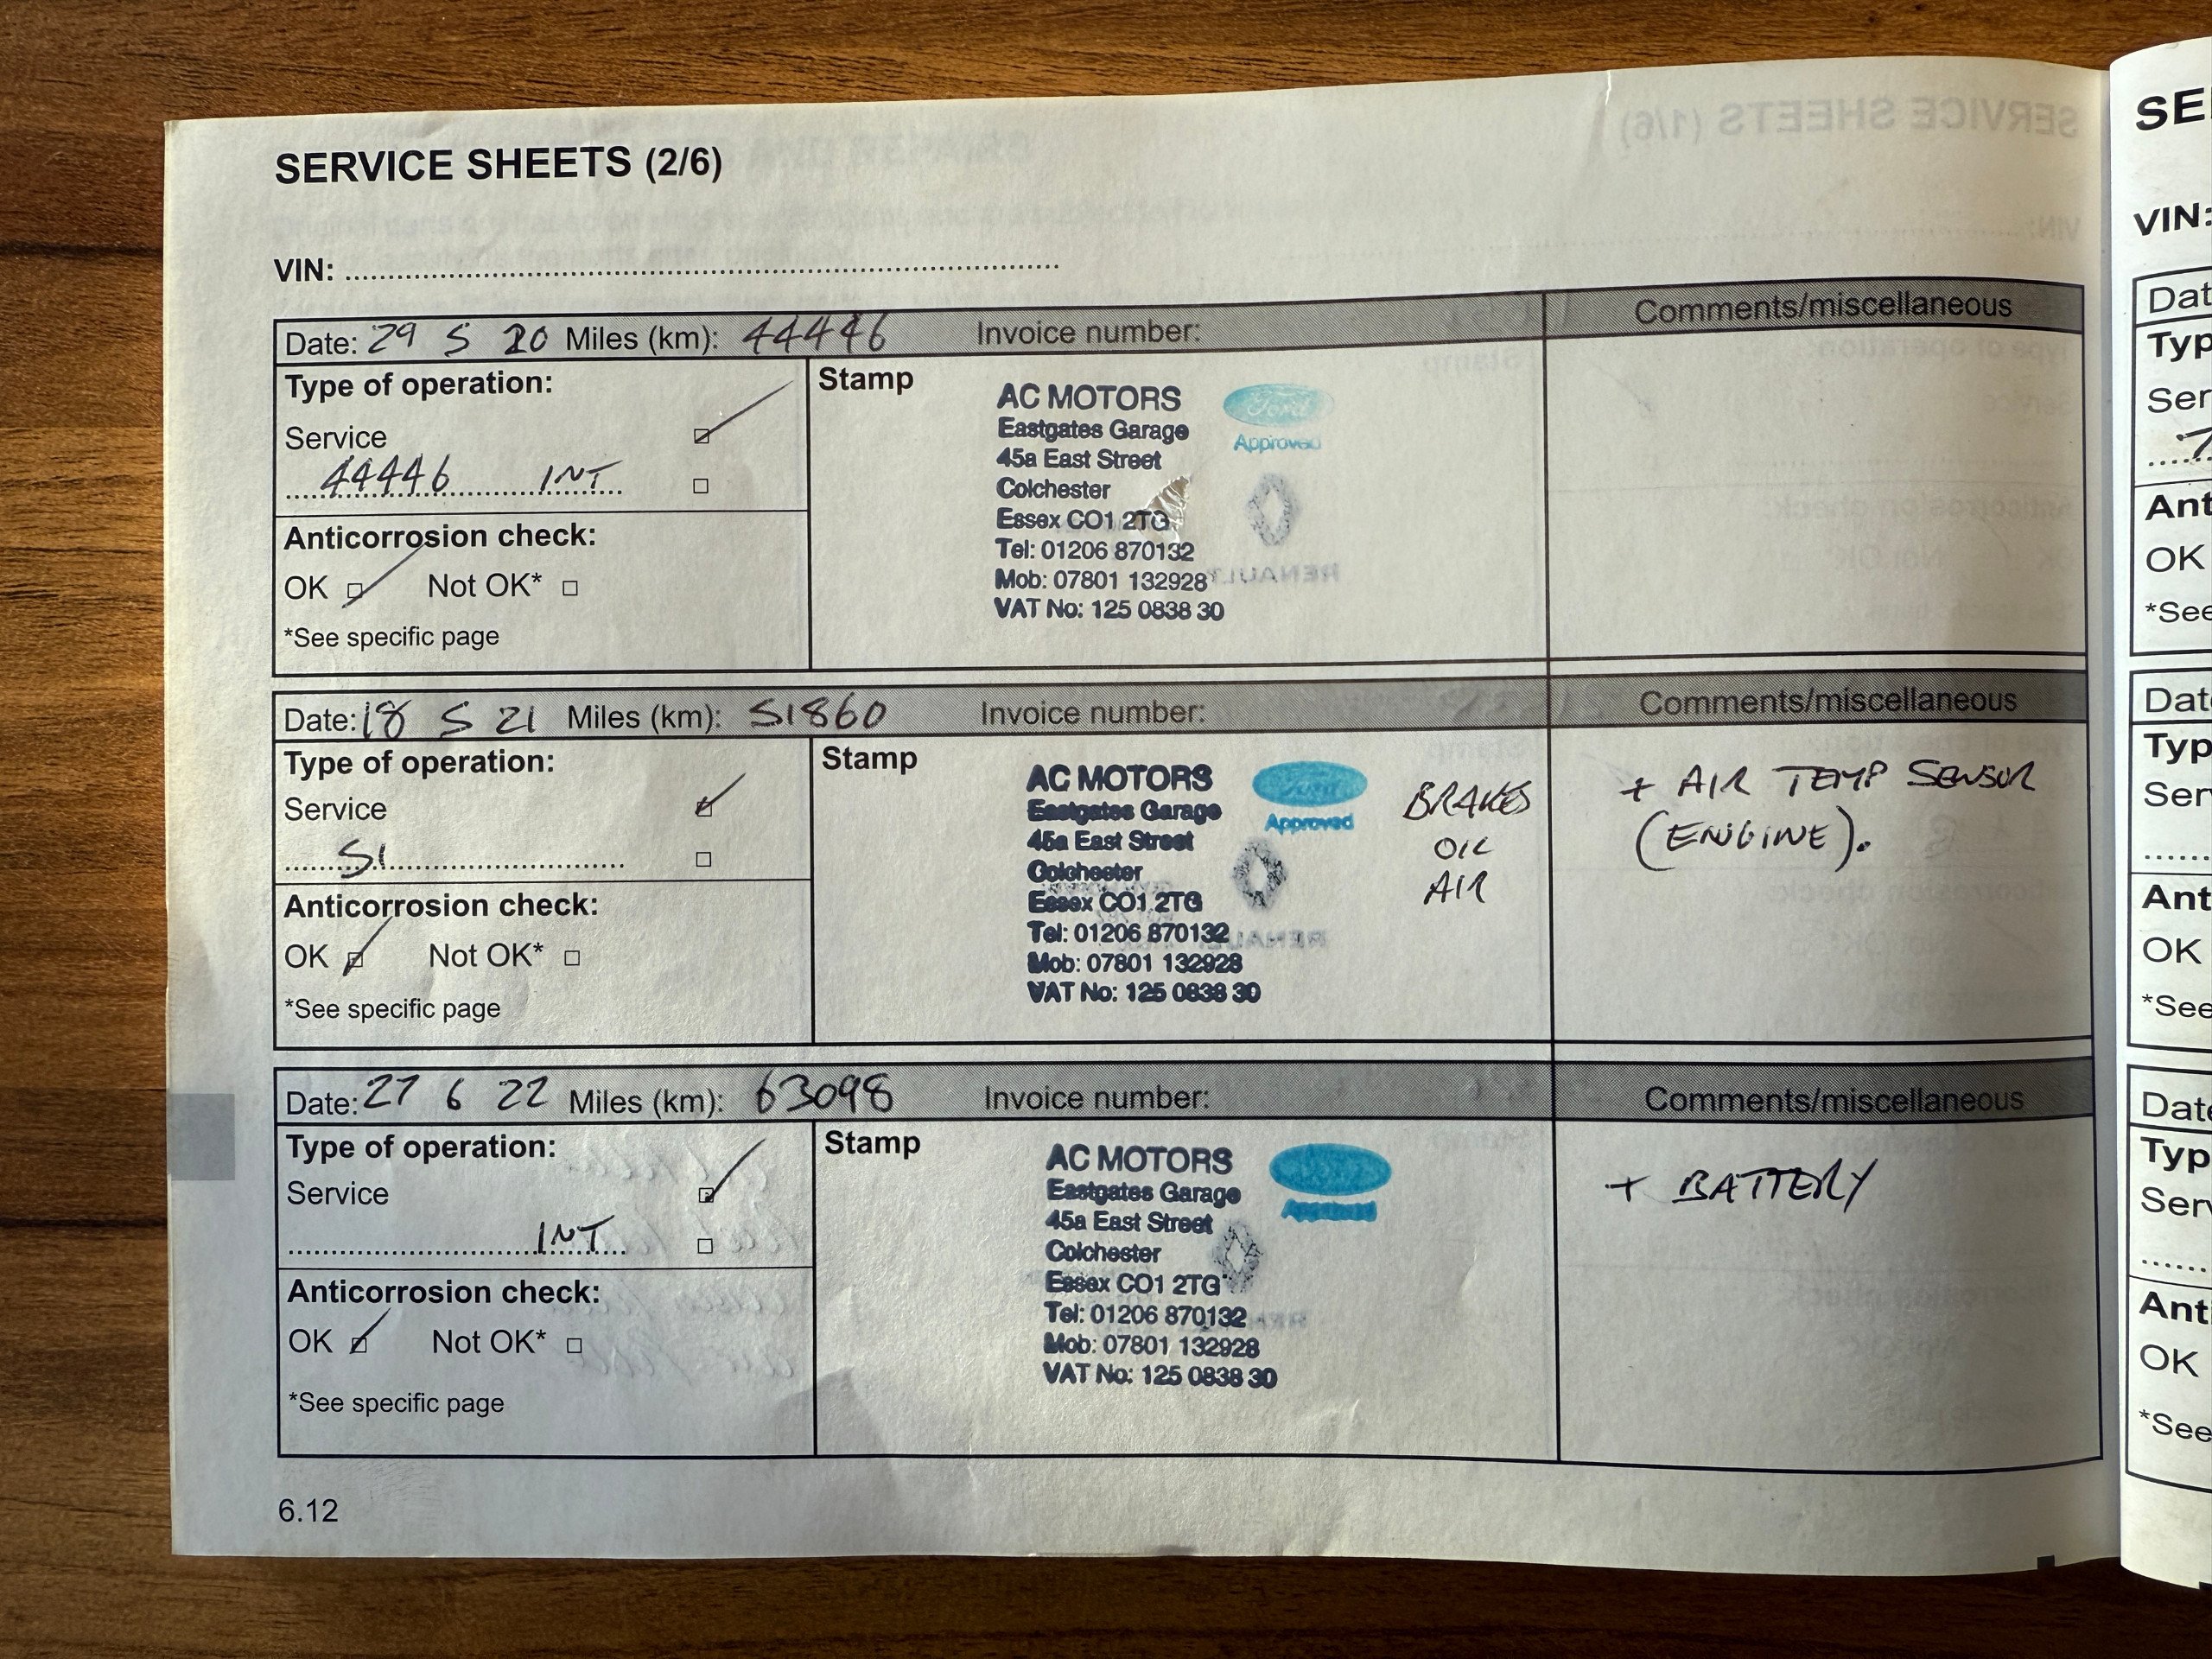 SERVICE SHEETS (2/6)
VIN:
Date: 29 5 20 Miles (km): 44446 Invoice number: Comments/miscellaneous
Type of operation:
Service
44446 INT
Anticorrosion check:
OK Not OK*
*See specific page
Stamp
AC MOTORS
Eastgates Garage
45a East Street
Colchester
Essex CO1 2TG
Tel: 01206 870132
Mob: 07801 132928
VAT No: 125 0838 30
Ford
Approved
RENAULT
Date: 18 5 21 Miles (km): 51860 Invoice number: Comments/miscellaneous
Type of operation:
Service
51
Anticorrosion check:
OK Not OK*
*See specific page
Stamp
AC MOTORS
Eastgates Garage
45a East Street
Colchester
Essex CO1 2TG
Tel: 01206 870132
Mob: 07801 132928
VAT No: 125 0838 30
Ford
Approved
RENAULT
BRAKES
OIL
AIR
+ AIR TEMP SENSOR
(ENGINE).
Date: 27 6 22 Miles (km): 63098 Invoice number: Comments/miscellaneous
Type of operation:
Service
INT
Anticorrosion check:
OK Not OK*
*See specific page
Stamp
AC MOTORS
Eastgates Garage
45a East Street
Colchester
Essex CO1 2TG
Tel: 01206 870132
Mob: 07801 132928
VAT No: 125 0838 30
Approved
+ BATTERY
6.12
SE
VIN:
Dat
Typ
Ser
Ant
OK
*See
Dat
Typ
Ser
Ant
OK
*See
Date
Typ
Serv
Anti
OK
*See